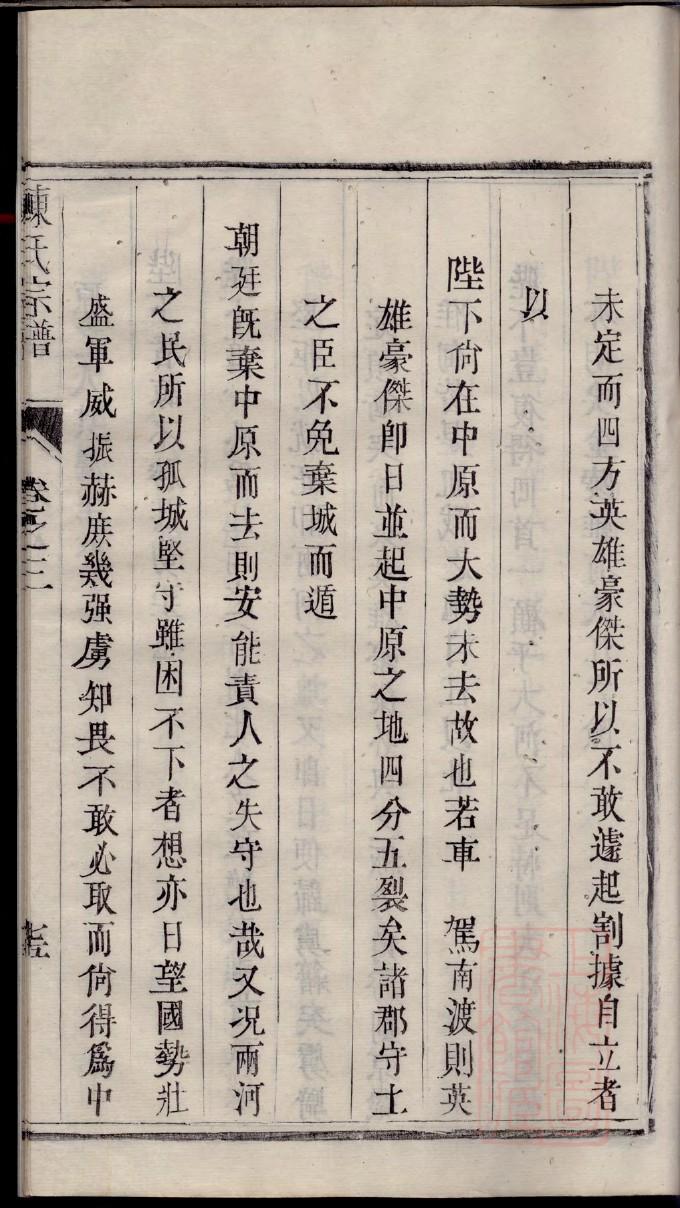 未定而四方英雄豪傑所以不敢遽起割據自立者
以
陛下尙在中原而大勢未去故也若車　駕南渡則英
雄豪傑卽日並起中原之地四分五裂矣諸郡守土
之臣不免棄城而遁
朝廷旣棄中原而去則安能責人之失守也哉又况兩河
之民所以孤城堅守雖困不下者想亦日望國勢壯
盛軍威振赫庶幾强虜知畏不敢必取而尙得爲中
陳氏宗譜
卷之三